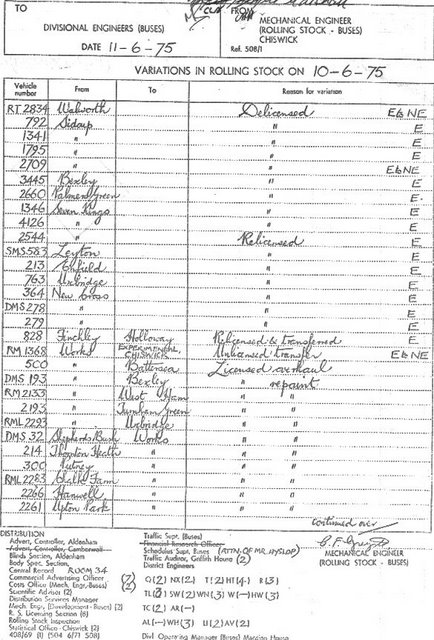 TO
FROM
DIVISIONAL ENGINEERS (BUSES)
MECHANICAL ENGINEER
(ROLLING STOCK - BUSES)
CHISWICK
DATE 11-6-75
Ref. 508/1
VARIATIONS IN ROLLING STOCK ON 10-6-75
Vehicle number From To Reason for variation
RT 2834 Walworth Delicensed E&NE
792 Sidcup " E
1341 " " E
1795 " " E
2709 " " E&NE
3445 Bexley " E
2660 Palmers Green " E.
1346 Seven Kings " E
4126 " " E
2544 " Relicensed E
SMS 583 Leyton " E
213 Enfield " E
763 Uxbridge " E
364 New Cross " E
DMS 278 " " E
279 " " E
828 Finchley Holloway Relicensed & transferred E
RM 1368 Works EXPERIMENTAL CHISWICK Unlicensed transfer E&NE
500 " Battersea Licensed overhaul
DMS 193 " Bexley " repaint
RM 2133 " West Ham " "
2193 " Turnham Green " "
RML 2293 " Uxbridge " "
DMS 32 Shepherds Bush Works " "
214 Thornton Heath " " "
300 Putney " " "
RML 2283 Chalk Farm " " "
2266 Hanwell " " "
2261 Upton Park " " "
continued over
DISTRIBUTION
Advert. Controller, Aldenham
Advert. Controller, Camberwell
Blinds Section, Aldenham
Body Spec. Section,
Central Record ROOM 34
Commercial Advertising Officer (2)
Costs Office (Mech. Engr. Buses) (2)
Scientific Adviser (2)
Distribution Services Manager
Mech. Engr. (Development - Buses) (2)
R. S. Licensing Section (6)
Rolling Stock Inspection
Statistical Office - Chiswick (2)
408/69 (1) (504 6/71 508)
Traffic Supt. (Buses)
Financial Research Officer
Schedules Supt. Buses (ATTN. OF MR. HYSLOP)
Traffic Auditor, Griffith House (2)
District Engineers
MECHANICAL ENGINEER
(ROLLING STOCK - BUSES)
G(2) NX(2) T(2) HT(4) R(3)
TL(3) SW(2) WN(3) W(-) HW(3)
TC(2) AR(-)
AL(-) WH(3) U(2) AV(2)
Divl. Operating Manager (Buses) Manston House